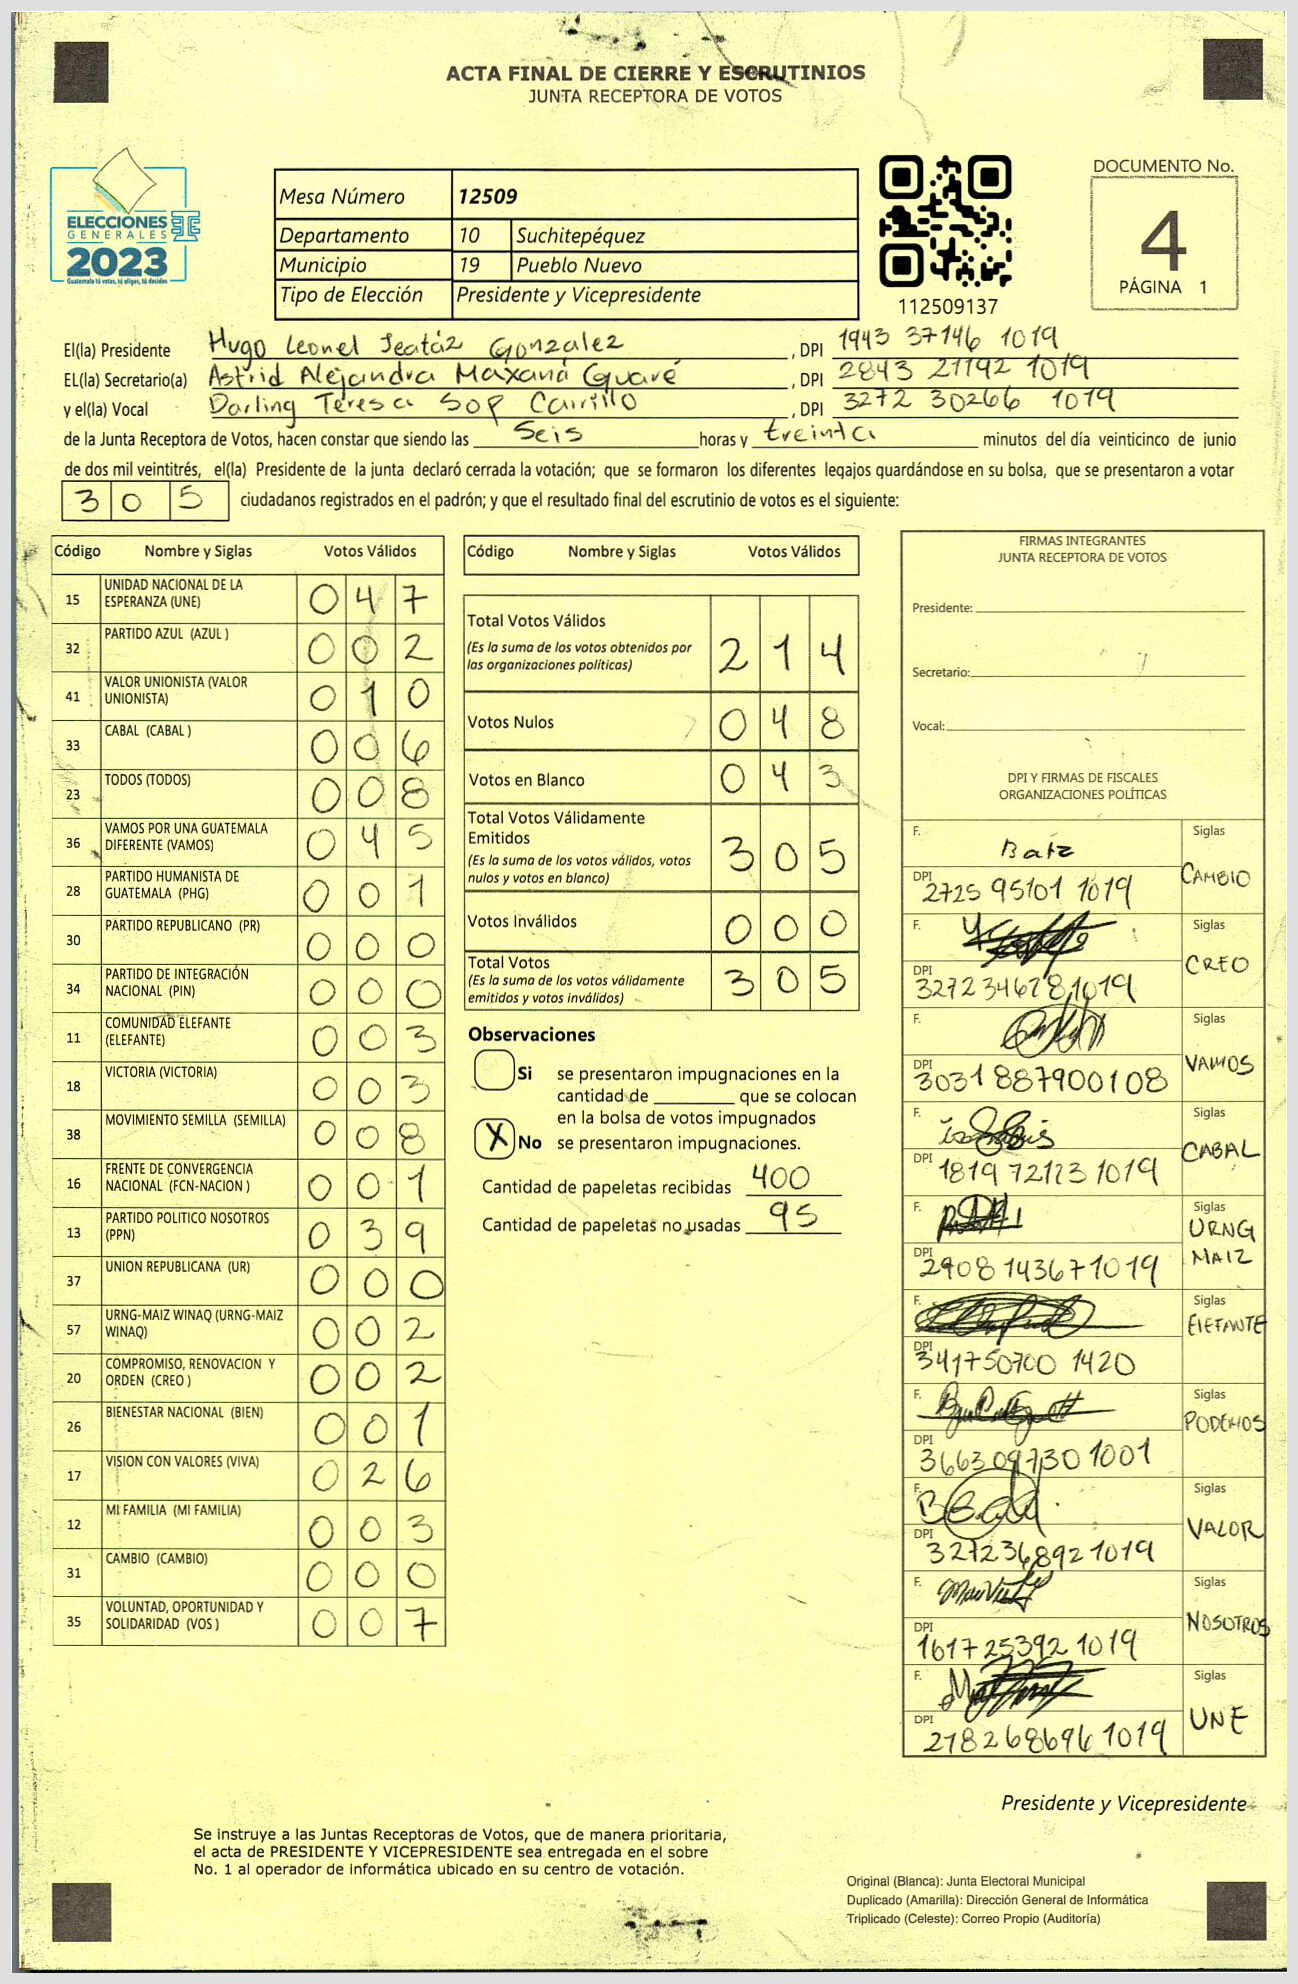 ACTA FINAL DE CIERRE Y ESCRUTINIOS
JUNTA RECEPTORA DE VOTOS
ELECCIONES
GENERALES
2023
Guatemala tú votas, tú eliges, tú decides
Mesa Número 12509
Departamento 10 Suchitepéquez
Municipio 19 Pueblo Nuevo
Tipo de Elección Presidente y Vicepresidente
112509137
DOCUMENTO No.
4
PÁGINA 1
El(la) Presidente Hugo Leonel González , DPI 1943 37146 1019
EL(la) Secretario(a) Astrid Alejandra Maxaná Guaré , DPI 2843 21192 1019
y el(la) Vocal Darling Teresa Sop Carrillo , DPI 3272 30266 1019
de la Junta Receptora de Votos, hacen constar que siendo las Seis horas y treinta minutos del día veinticinco de junio
de dos mil veintitrés, el(la) Presidente de la junta declaró cerrada la votación; que se formaron los diferentes legajos guardándose en su bolsa, que se presentaron a votar
305 ciudadanos registrados en el padrón; y que el resultado final del escrutinio de votos es el siguiente:
Código Nombre y Siglas Votos Válidos
15 UNIDAD NACIONAL DE LA ESPERANZA (UNE) 047
32 PARTIDO AZUL (AZUL ) 002
41 VALOR UNIONISTA (VALOR UNIONISTA) 010
33 CABAL (CABAL ) 006
23 TODOS (TODOS) 008
36 VAMOS POR UNA GUATEMALA DIFERENTE (VAMOS) 045
28 PARTIDO HUMANISTA DE GUATEMALA (PHG) 001
30 PARTIDO REPUBLICANO (PR) 000
34 PARTIDO DE INTEGRACIÓN NACIONAL (PIN) 000
11 COMUNIDAD ELEFANTE (ELEFANTE) 003
18 VICTORIA (VICTORIA) 003
38 MOVIMIENTO SEMILLA (SEMILLA) 008
16 FRENTE DE CONVERGENCIA NACIONAL (FCN-NACION ) 001
13 PARTIDO POLITICO NOSOTROS (PPN) 039
37 UNION REPUBLICANA (UR) 000
57 URNG-MAIZ WINAQ (URNG-MAIZ WINAQ) 002
20 COMPROMISO, RENOVACION Y ORDEN (CREO ) 002
26 BIENESTAR NACIONAL (BIEN) 001
17 VISION CON VALORES (VIVA) 026
12 MI FAMILIA (MI FAMILIA) 003
31 CAMBIO (CAMBIO) 000
35 VOLUNTAD, OPORTUNIDAD Y SOLIDARIDAD (VOS ) 007
Código Nombre y Siglas Votos Válidos
Total Votos Válidos 214
(Es la suma de los votos obtenidos por
las organizaciones políticas)
Votos Nulos 048
Votos en Blanco 043
Total Votos Válidamente
Emitidos 305
(Es la suma de los votos válidos, votos
nulos y votos en blanco)
Votos Inválidos 000
Total Votos 305
(Es la suma de los votos válidamente
emitidos y votos inválidos)
Observaciones
Si se presentaron impugnaciones en la
cantidad de ________ que se colocan
en la bolsa de votos impugnados
X No se presentaron impugnaciones.
Cantidad de papeletas recibidas 400
Cantidad de papeletas no usadas 95
FIRMAS INTEGRANTES
JUNTA RECEPTORA DE VOTOS
Presidente:
Secretario:
Vocal:
DPI Y FIRMAS DE FISCALES
ORGANIZACIONES POLÍTICAS
F. Batz Siglas
DPI 2725 95101 1019 CAMBIO
F. Siglas
DPI 3272346781019 CREO
F. Siglas
DPI 3031887900108 VAMOS
F. Siglas
DPI 1819 72173 1019 CABAL
F. Siglas
DPI 2908 14367 1019 URNG MAIZ
F. Siglas
DPI 341750700 1420 ElEFANTE
F. Siglas
DPI 366309730 1001 PODEMOS
F. Siglas
DPI 3272368921019 VALOR
F. Siglas
DPI 1617253921019 NOSOTROS
F. Siglas
DPI 2782686961019 UNE
Presidente y Vicepresidente
Se instruye a las Juntas Receptoras de Votos, que de manera prioritaria,
el acta de PRESIDENTE Y VICEPRESIDENTE sea entregada en el sobre
No. 1 al operador de informática ubicado en su centro de votación.
Original (Blanca): Junta Electoral Municipal
Duplicado (Amarilla): Dirección General de Informática
Triplicado (Celeste): Correo Propio (Auditoría)